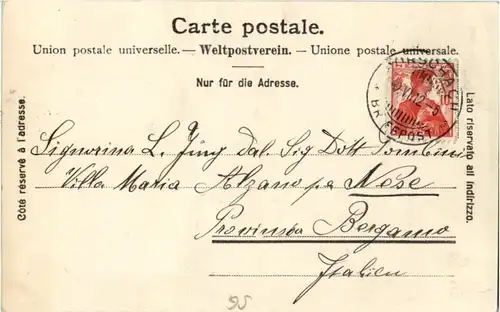 Carte postale.
Union postale universelle. — Weltpostverein. — Unione postale universale.
Nur für die Adresse.
Côté réservé à l'adresse.
Lato riservato all indirizzo.
RORSCHACH
BRIEFPOST
Signorina L. Jüng dal. Sig Dott Tombini
Villa Maria Alzano pa Nese
Provinsia Bergamo
Italien
95